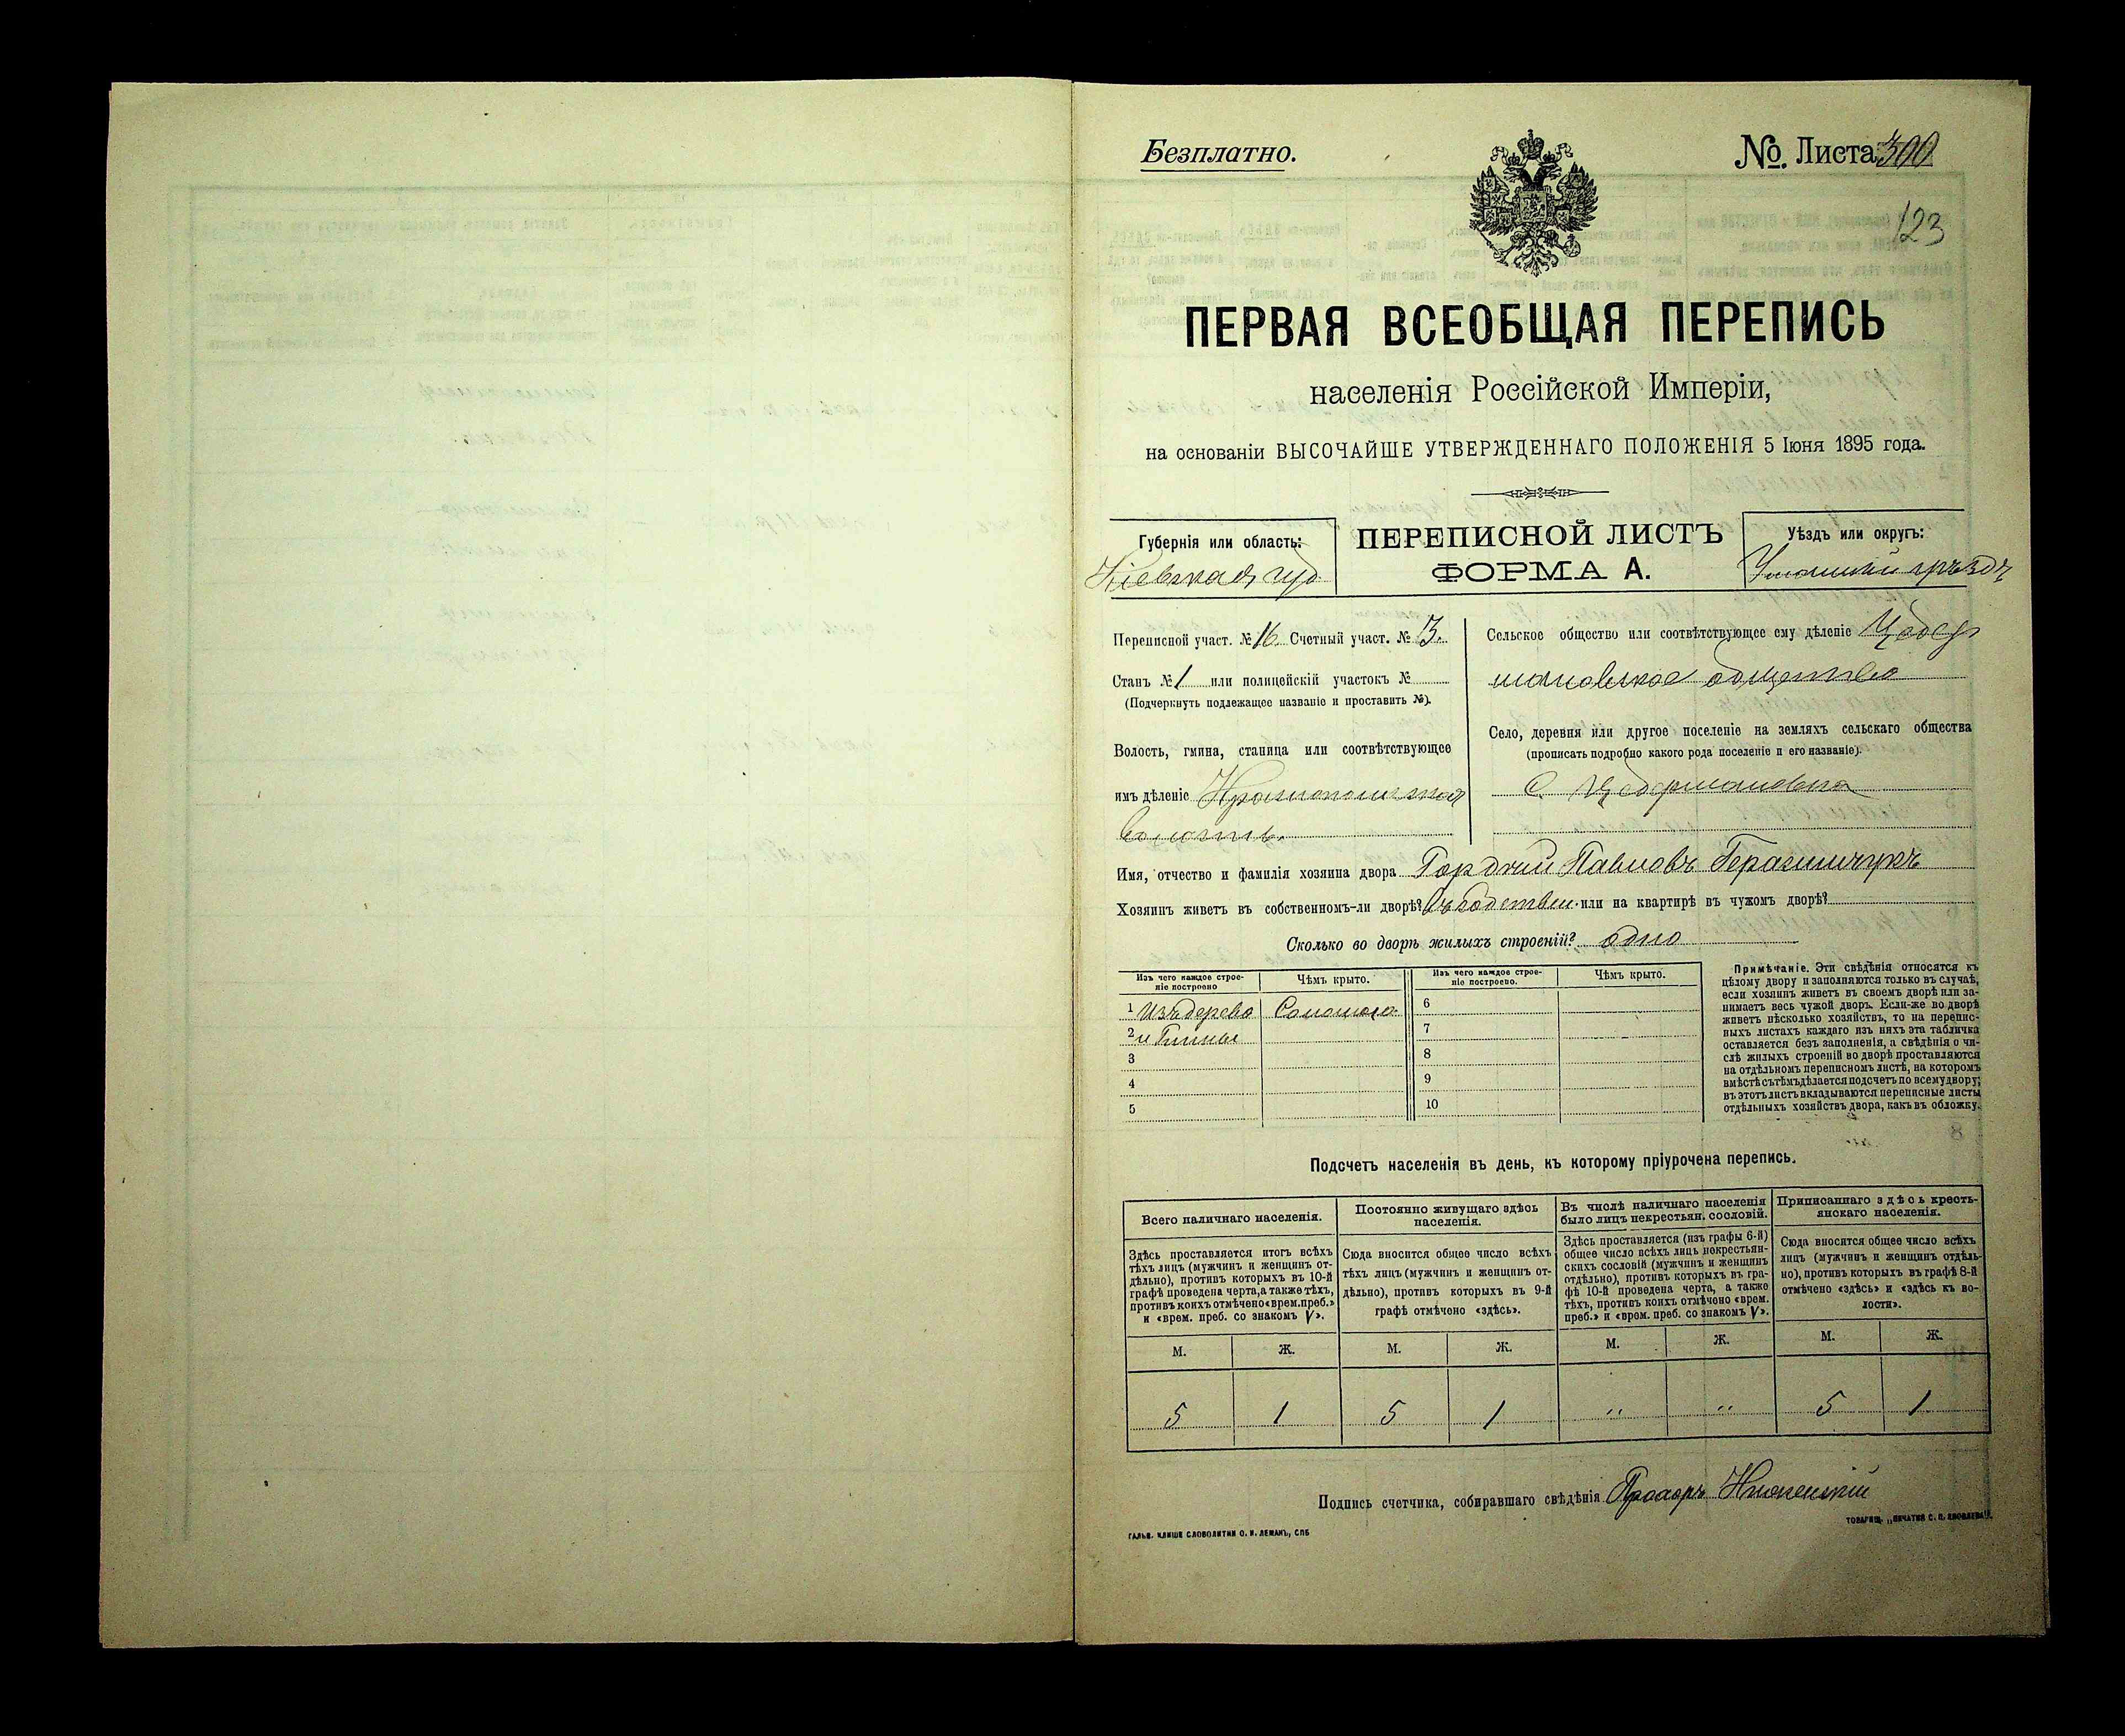 Безплатно.
№. Листа 300
123
ПЕРВАЯ ВСЕОБЩАЯ ПЕРЕПИСЬ
населенія Россійской Имперіи,
на основаніи ВЫСОЧАЙШЕ УТВЕРЖДЕННАГО ПОЛОЖЕНІЯ 5 Іюня 1895 года.
Губернія или область:
Кіевская губ.
ПЕРЕПИСНОЙ ЛИСТЪ
ФОРМА А.
Уѣздъ или округъ:
Уманский уѣздъ
Переписной участ. № 16. Счетный участ. № 3.
Станъ № 1 или полицейскій участокъ №
(Подчеркнуть подлежащее названіе и проставить №).
Волость, гмина, станица или соотвѣтствующее
имъ дѣленіе Краснопольская
волость.
Сельское общество или соотвѣтствующее ему дѣленіе Цебер
мановское общество
Село, деревня или другое поселеніе на земляхъ сельскаго общества
(прописать подробно какого рода поселеніе и его названіе).
С. Цебермановка
Имя, отчество и фамилія хозяина двора Гордѣй Павловъ Герасимчукъ
Хозяинъ живетъ въ собственномъ-ли дворѣ? Въ собствен. или на квартирѣ въ чужомъ дворѣ?
Сколько во дворѣ жилыхъ строеній? одно
Изъ чего каждое строе-
ніе построено
Чѣмъ крыто.
Изъ чего каждое строе-
ніе построено.
Чѣмъ крыто.
1 Изъ дерева Соломою
2 и Глины
3
4
5
6
7
8
9
10
Примѣчаніе. Эти свѣдѣнія относятся къ
цѣлому двору и заполняются только въ случаѣ,
если хозяинъ живетъ въ своемъ дворѣ или за-
нимаетъ весь чужой дворъ. Если-же во дворѣ
живетъ нѣсколько хозяйствъ, то на перепис-
ныхъ листахъ каждаго изъ нихъ эта табличка
оставляется безъ заполненія, а свѣдѣнія о чи-
слѣ жилыхъ строеній во дворѣ проставляются
на отдѣльномъ переписномъ листѣ, на которомъ
вмѣстѣ съ тѣмъ дѣлается подсчетъ по всему двору;
въ этотъ листъ вкладываются переписные листы
отдѣльныхъ хозяйствъ двора, какъ въ обложку.
Подсчетъ населенія въ день, къ которому пріурочена перепись.
Всего наличнаго населенія.
Постоянно живущаго здѣсь
населенія.
Въ числѣ наличнаго населенія
было лицъ некрестьян. сословій.
Приписаннаго здѣсь кресть-
янскаго населенія.
Здѣсь проставляется итогъ всѣхъ
тѣхъ лицъ (мужчинъ и женщинъ от-
дѣльно), противъ которыхъ въ 10-й
графѣ проведена черта, а также тѣхъ,
противъ коихъ отмѣчено «врем. преб.»
и «врем. преб. со знакомъ V».
Сюда вносится общее число всѣхъ
тѣхъ лицъ (мужчинъ и женщинъ от-
дѣльно), противъ которыхъ въ 9-й
графѣ отмѣчено «здѣсь».
Здѣсь проставляется (изъ графы 6-й)
общее число всѣхъ лицъ некрестьян-
скихъ сословій (мужчинъ и женщинъ
отдѣльно), противъ которыхъ въ гра-
фѣ 10-й проведена черта, а также
тѣхъ, противъ коихъ отмѣчено «врем.
преб.» и «врем. преб. со знакомъ V».
Сюда вносится общее число всѣхъ
лицъ (мужчинъ и женщинъ отдѣль-
но), противъ которыхъ въ графѣ 8-й
отмѣчено «здѣсь» и «здѣсь къ во-
лости».
М. Ж. М. Ж. М. Ж. М. Ж.
5 1 5 1 " " 5 1
Подпись счетчика, собиравшаго свѣдѣнія Прохоръ
ГАЛЬВ. КЛИШЕ СЛОВОЛИТНИ О. И. ЛЕМАНЪ, СПБ
ТОВАРИЩ. „ПЕЧАТНЯ С. П. ЯКОВЛЕВА".